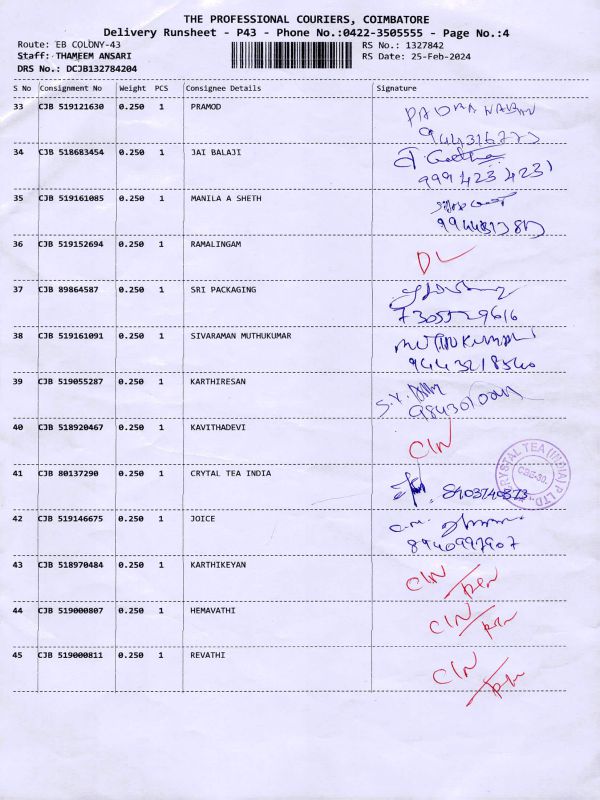 THE PROFESSIONAL COURIERS, COIMBATORE
Delivery Runsheet - P43 - Phone No.:0422-3505555 - Page No.:4
Route: EB COLONY-43 RS No.: 1327842
Staff: THAMEEM ANSARI RS Date: 25-Feb-2024
DRS No.: DCJB132784204
S No Consignment No Weight PCS Consignee Details Signature
33 CJB 519121630 0.250 1 PRAMOD
34 CJB 518683454 0.250 1 JAI BALAJI
9994234231
35 CJB 519161085 0.250 1 MANILA A SHETH
36 CJB 519152694 0.250 1 RAMALINGAM DL
37 CJB 89864587 0.250 1 SRI PACKAGING
7305529616
38 CJB 519161091 0.250 1 SIVARAMAN MUTHUKUMAR
9443218540
39 CJB 519055287 0.250 1 KARTHIRESAN
40 CJB 518920467 0.250 1 KAVITHADEVI CIN
41 CJB 80137290 0.250 1 CRYTAL TEA INDIA 8903740873
CRYSTAL TEA (INDIA) P LTD. CBE-30.
42 CJB 519146675 0.250 1 JOICE
8940997907
43 CJB 518970484 0.250 1 KARTHIKEYAN CIN
44 CJB 519000807 0.250 1 HEMAVATHI CIN
45 CJB 519000811 0.250 1 REVATHI CIN